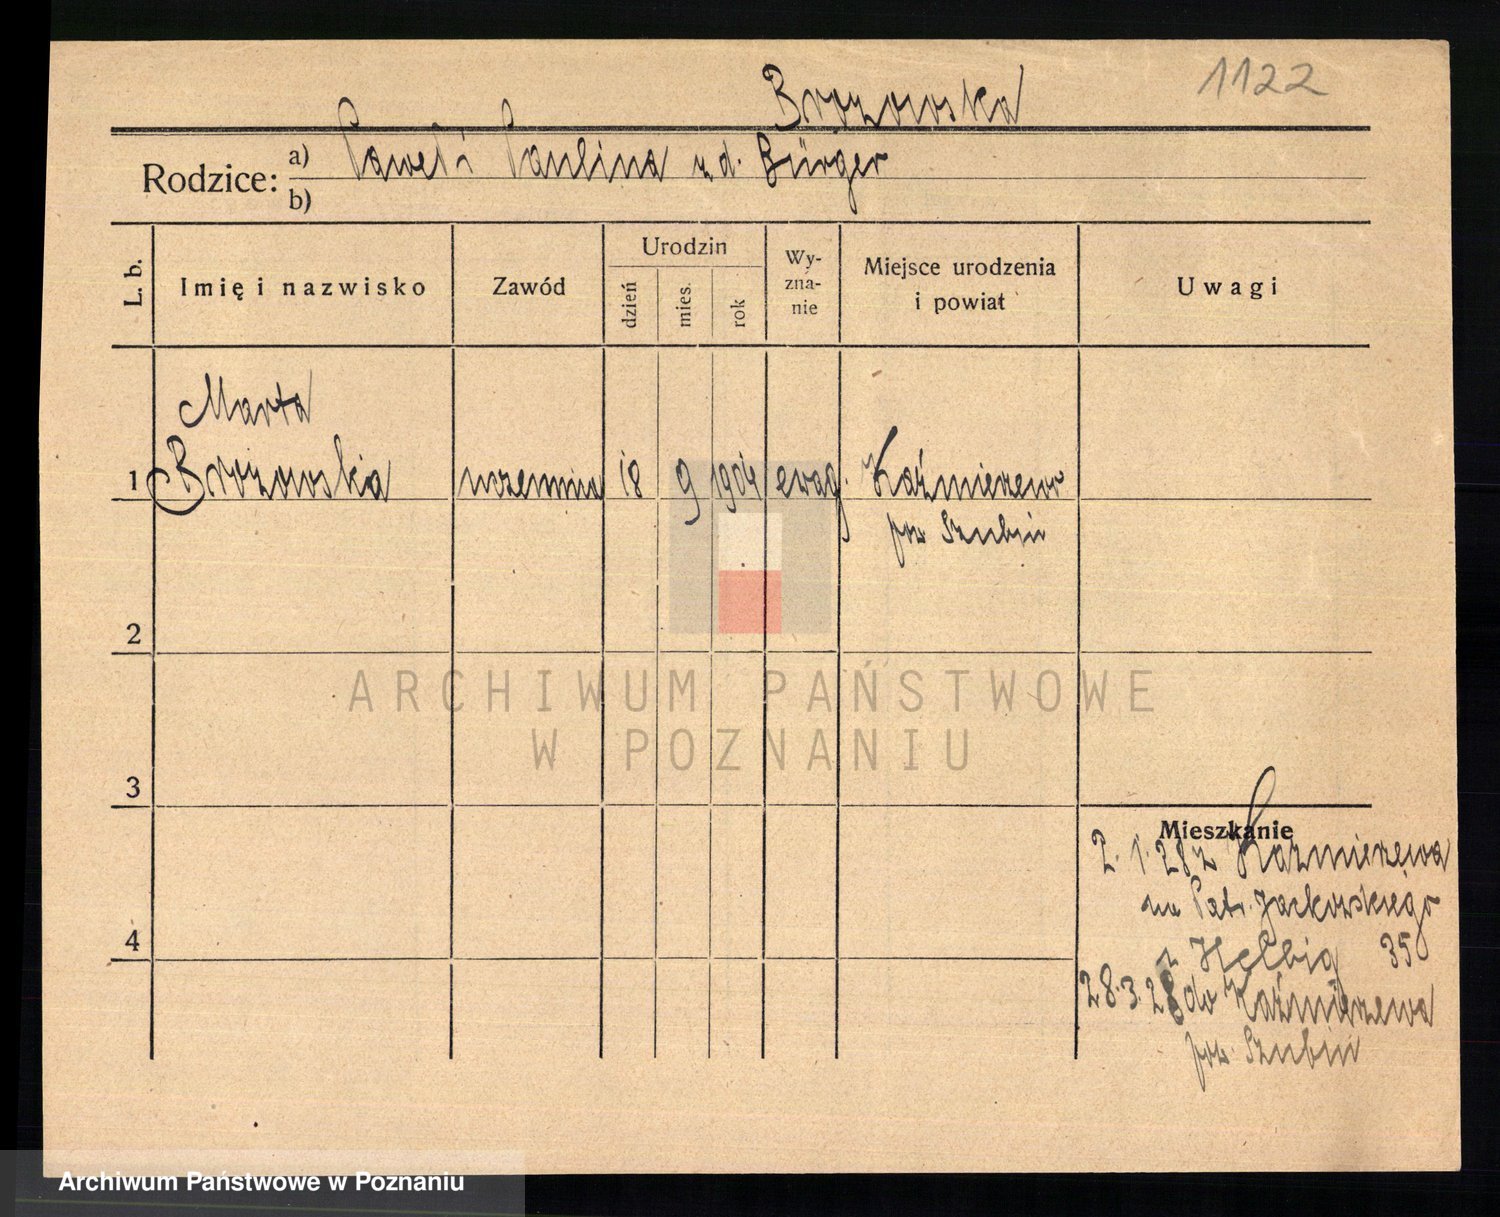 1122
Brozowska
Rodzice:
a) Paweł i Paulina zd. Bürger
b)
L. b.
Imię i nazwisko
Zawód
Urodzin
dzień
mies.
rok
Wy-
zna-
nie
Miejsce urodzenia
i powiat
Uwagi
Marta
1 Brozowska uczennica 18 9 1904 ewag. Kaźmierzewo
pow Szubin
2
3
4
Mieszkanie
2.1.28 z Kaźmierzewa
na Patr. Jackowskiego
z Helbig 35
28.3.28 do Kaźmierzewa
pow. Szubin
ARCHIWUM PAŃSTWOWE
W POZNANIU
Archiwum Państwowe w Poznaniu